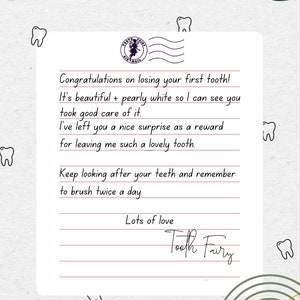 Congratulations on losing your first tooth!
It's beautiful + pearly white so I can see you
took good care of it.
I've left you a nice surprise as a reward
for leaving me such a lovely tooth.
Keep looking after your teeth and remember
to brush twice a day
Lots of love
Tooth Fairy